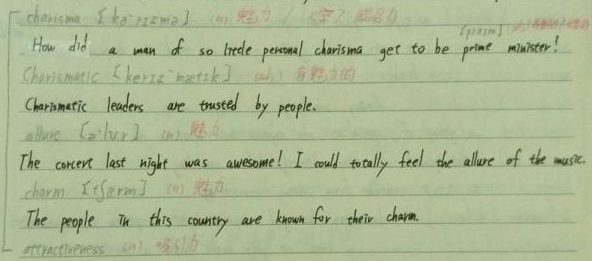 charisma [kə`rɪzmə] (n) 魅力
How did a man of so little personal charisma get to be prime minister!
Charismatic [kerɪz`mætɪk] (adj) 有魅力的
Charismatic leaders are trusted by people.
allure [ə`lʊr] (n) 魅力
The concert last night was awesome! I could totally feel the allure of the music.
charm [tʃɑrm] (n) 魅力
The people in this country are known for their charm.
attractiveness (n) 吸引力